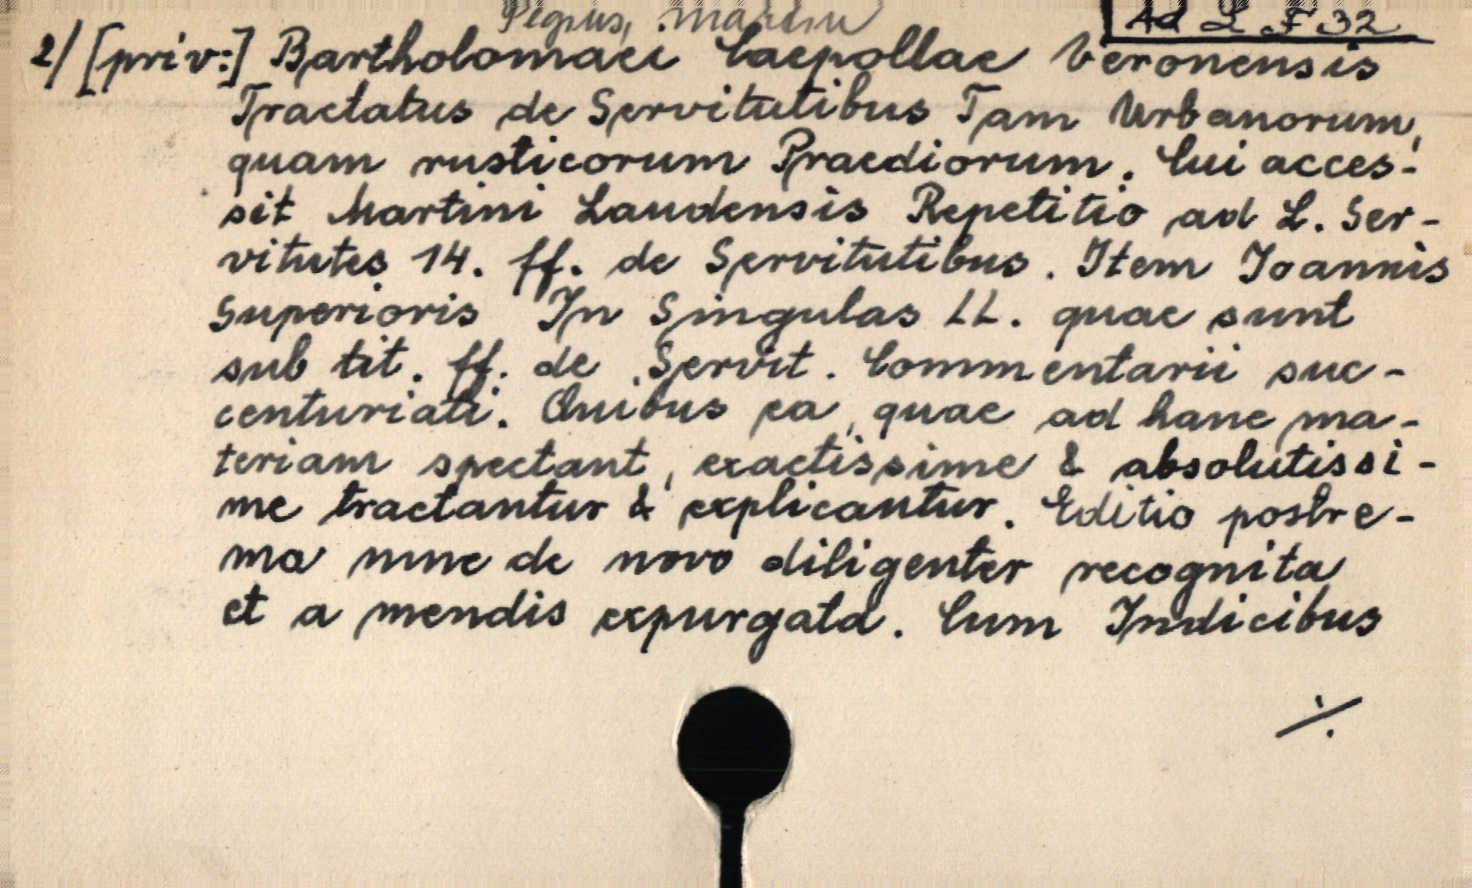 Pegius, Martin
Ad L F 32
2/ [priv:] Bartholomaei Caepollae Veronensis
Tractatus de Servitutibus Tam Urbanorum,
quam rusticorum Praediorum. Cui acces-
sit Martini Laudensis Repetitio ad L. Ser-
vitutes 14. ff. de Servitutibus. Item Joannis
Superioris In Singulas LL. quae sunt
sub tit. ff. de Servit. Commentarii suc-
centuriati. Quibus ea, quae ad hanc ma-
teriam spectant, exactissime & absolutissi-
me tractantur & explicantur. Editio postre-
ma nunc de novo diligenter recognita
et a mendis expurgata. Cum Indicibus
./.